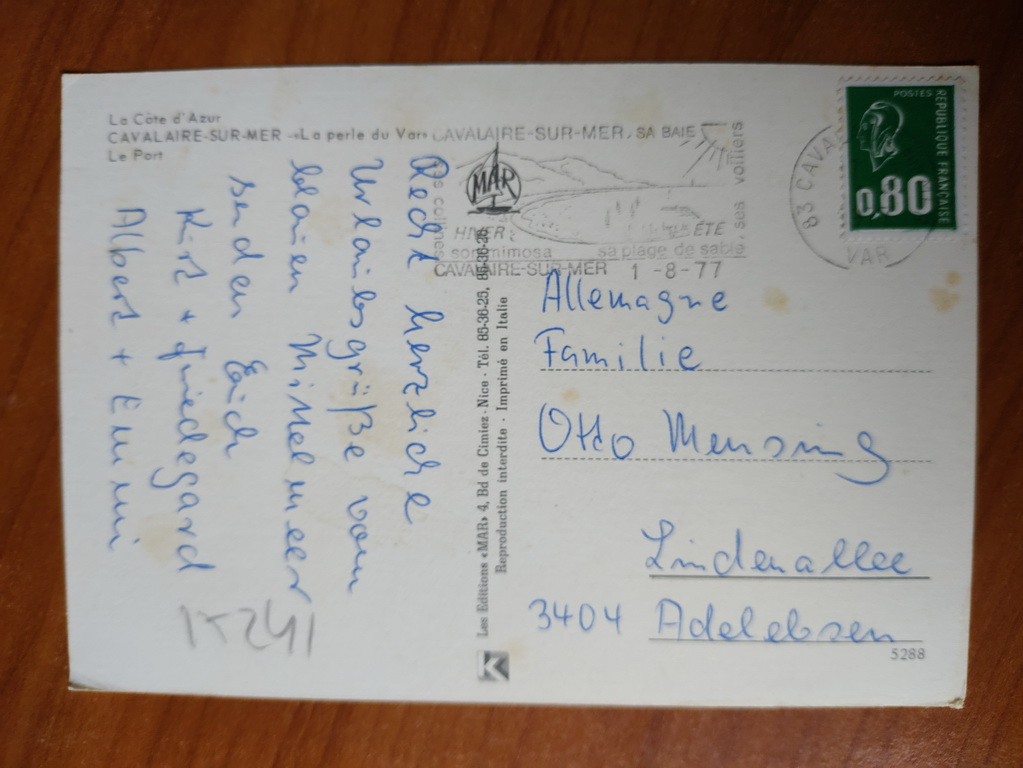 La Côte d'Azur
CAVALAIRE-SUR-MER - «La perle du Var»
Le Port
CAVALAIRE-SUR-MER, SA BAIE
ses collines
ses voiliers
HIVER:
son mimosa
ÉTÉ
sa plage de sable
CAVALAIRE-SUR-MER 1-8-77
83 CAVA
VAR
POSTES
REPUBLIQUE FRANÇAISE
0,80
MAR
Recht herzliche
Urlaubsgrüße vom
blauen Mittelmeer
senden Euch
Kurt + Friedegard
Albert + Emmi
K241
Les Editions «MAR» 4, Bd de Cimiez - Nice - Tél. 85-36-25, 85-36-26
Reproduction interdite - Imprimé en Italie
K
Allemagne
Familie
Otto Mensing
Lindenallee
3404 Adelebsen
5288